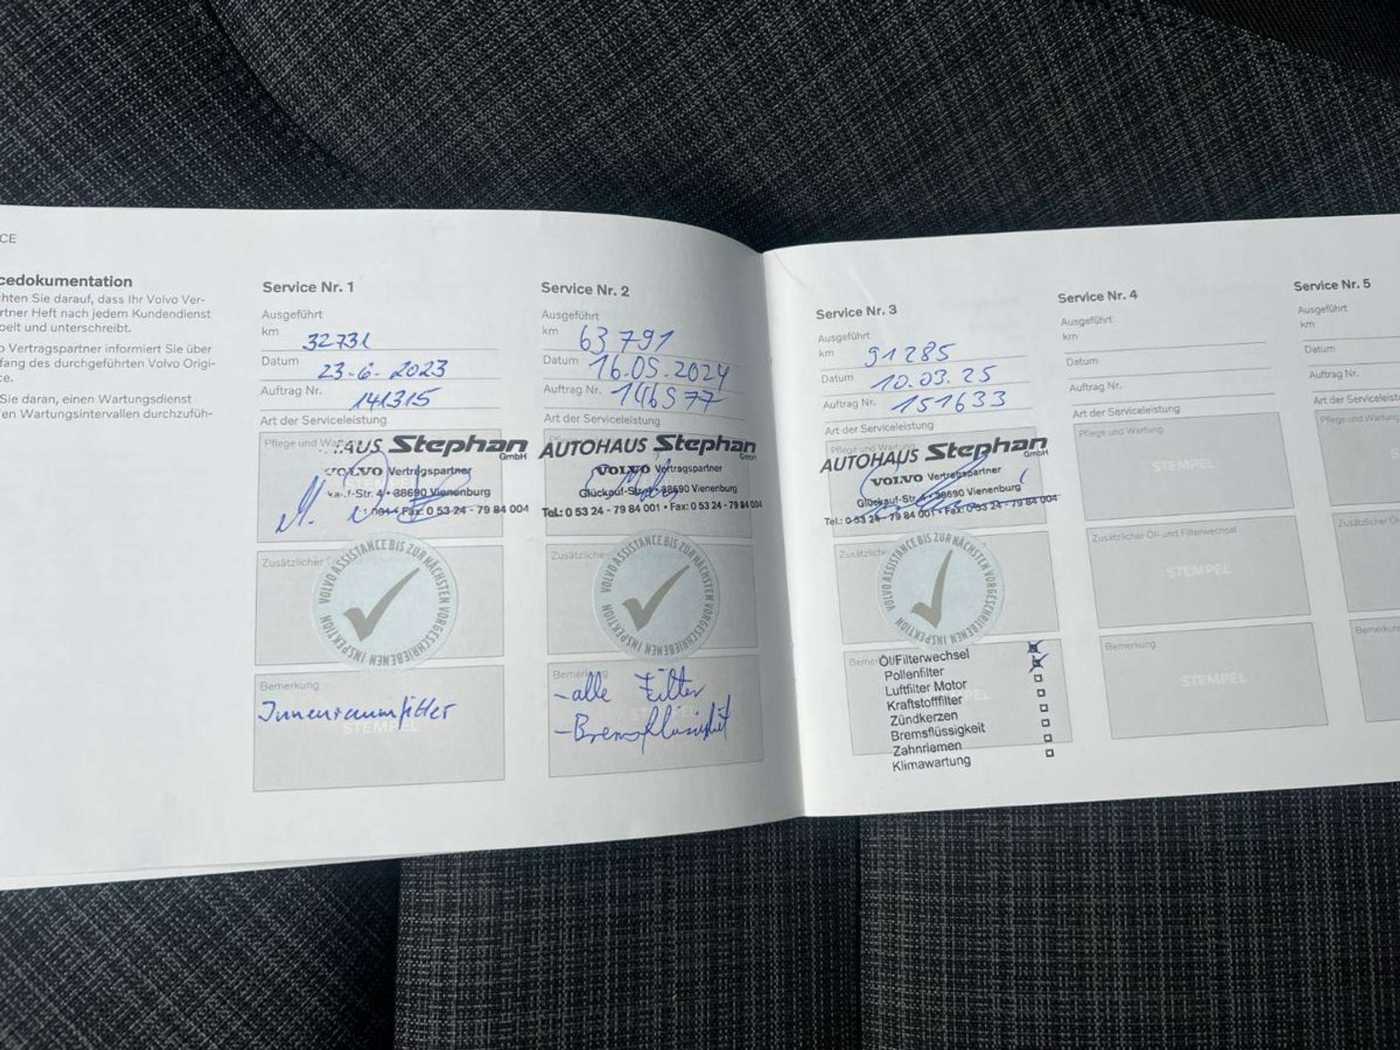 CE
cedokumentation
chten Sie darauf, dass Ihr Volvo Ver-
artner Heft nach jedem Kundendienst
pelt und unterschreibt.
o Vertragspartner informiert Sie über
fang des durchgeführten Volvo Origi-
ce.
Sie daran, einen Wartungsdienst
en Wartungsintervallen durchzufüh-
Service Nr. 1
Ausgeführt
km 32731
Datum 23-6-2023
Auftrag Nr. 141315
Art der Serviceleistung
Pflege und Wartung
AUS Stephan
GmbH
VOLVO Vertragspartner
f-Str. 4 • 38690 Vienenburg
Fax: 0 53 24 - 79 84 004
Zusätzlicher
VOLVO ASSISTANCE BIS ZUR NÄCHSTEN VORGESCHRIEBENEN INSPEKTION
Bemerkung
Innenraumfilter
STEMPEL
Service Nr. 2
Ausgeführt
km 63791
Datum 16.05.2024
Auftrag Nr. 146977
Art der Serviceleistung
AUTOHAUS Stephan
GmbH
VOLVO Vertragspartner
Glückauf-Str. 4 • 38690 Vienenburg
Tel.: 0 53 24 - 79 84 001 • Fax: 0 53 24 - 79 84 004
Zusätzliche
VOLVO ASSISTANCE BIS ZUR NÄCHSTEN VORGESCHRIEBENEN INSPEKTION
Bemerkung
- alle Filter
- Bremsflüssigkeit
Service Nr. 3
Ausgeführt
km 91285
Datum 10.03.25
Auftrag Nr. 151633
Art der Serviceleistung
Pflege und Wartung
AUTOHAUS Stephan
GmbH
VOLVO Vertragspartner
Glückauf-Str. 4 • 38690 Vienenburg
Tel.: 0 53 24 - 79 84 001 • Fax: 0 53 24 - 79 84 004
Zusätzliche
VOLVO ASSISTANCE BIS ZUR NÄCHSTEN VORGESCHRIEBENEN INSPEKTION
Öl/Filterwechsel
Pollenfilter
Luftfilter Motor
Kraftstofffilter
Zündkerzen
Bremsflüssigkeit
Zahnriemen
Klimawartung
Service Nr. 4
Ausgeführt
km
Datum
Auftrag Nr.
Art der Serviceleistung
Pflege und Wartung
STEMPEL
Zusätzlicher Öl- und Filterwechsel
STEMPEL
Bemerkung
STEMPEL
Service Nr. 5
Ausgeführt
km
Datum
Auftrag Nr.
Art der Serviceleistung
Pflege und Wartung
Zusätzlicher
Bemerkung